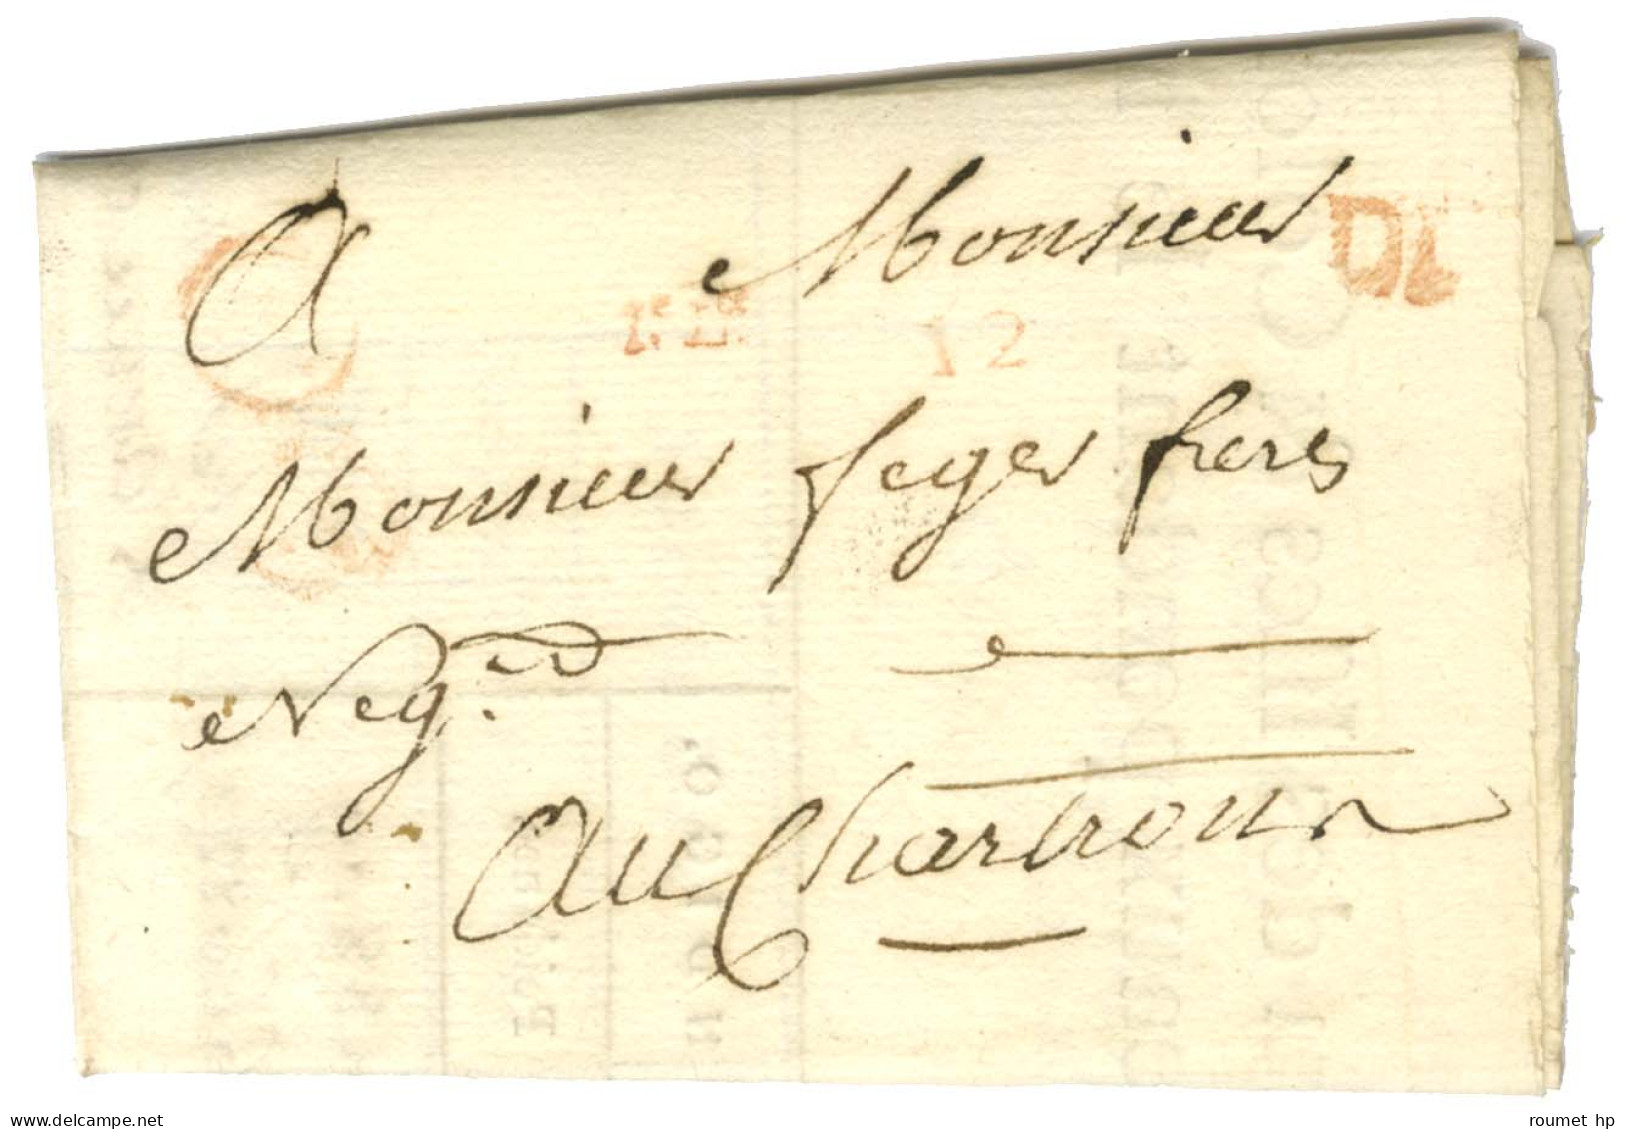 A Monsieur
DL
12
Monsieur feger freres
Neg.t
Au Chartrons
www.delcampe.net
roumet hp